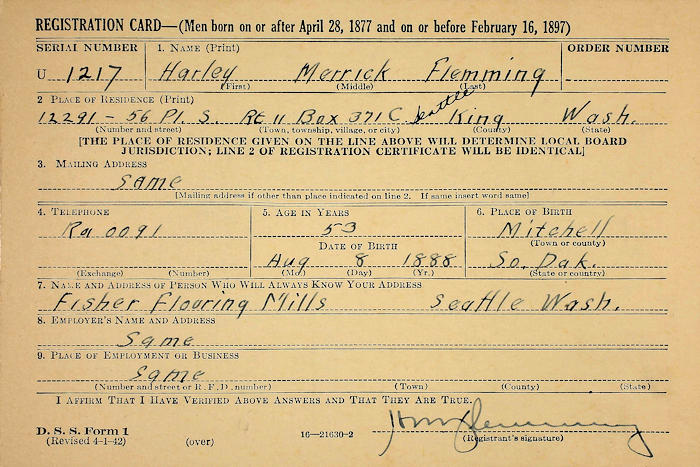 REGISTRATION CARD—(Men born on or after April 28, 1877 and on or before February 16, 1897)
SERIAL NUMBER 1. NAME (Print) ORDER NUMBER
U 1217 Harley Merrick Flemming
(First) (Middle) (Last)
2 PLACE OF RESIDENCE (Print)
12291 - 56 Pl. S. Rt 11 Box 371 C Seattle King Wash.
(Number and street) (Town, township, village, or city) (County) (State)
[THE PLACE OF RESIDENCE GIVEN ON THE LINE ABOVE WILL DETERMINE LOCAL BOARD
JURISDICTION; LINE 2 OF REGISTRATION CERTIFICATE WILL BE IDENTICAL]
3. MAILING ADDRESS
Same
[Mailing address if other than place indicated on line 2. If same insert word same]
4. TELEPHONE 5. AGE IN YEARS 6. PLACE OF BIRTH
Ra 0091 53 Mitchell
(Town or county)
DATE OF BIRTH
Aug 8 1888 So. Dak.
(Exchange) (Number) (Mo.) (Day) (Yr.) (State or country)
7. NAME AND ADDRESS OF PERSON WHO WILL ALWAYS KNOW YOUR ADDRESS
Fisher Flouring Mills Seattle Wash.
8. EMPLOYER'S NAME AND ADDRESS
Same
9. PLACE OF EMPLOYMENT OR BUSINESS
Same
(Number and street or R. F. D. number) (Town) (County) (State)
I AFFIRM THAT I HAVE VERIFIED ABOVE ANSWERS AND THAT THEY ARE TRUE.
D. S. S. Form 1
(Revised 4-1-42) (over) 16—21630-2 H M Flemming
(Registrant's signature)